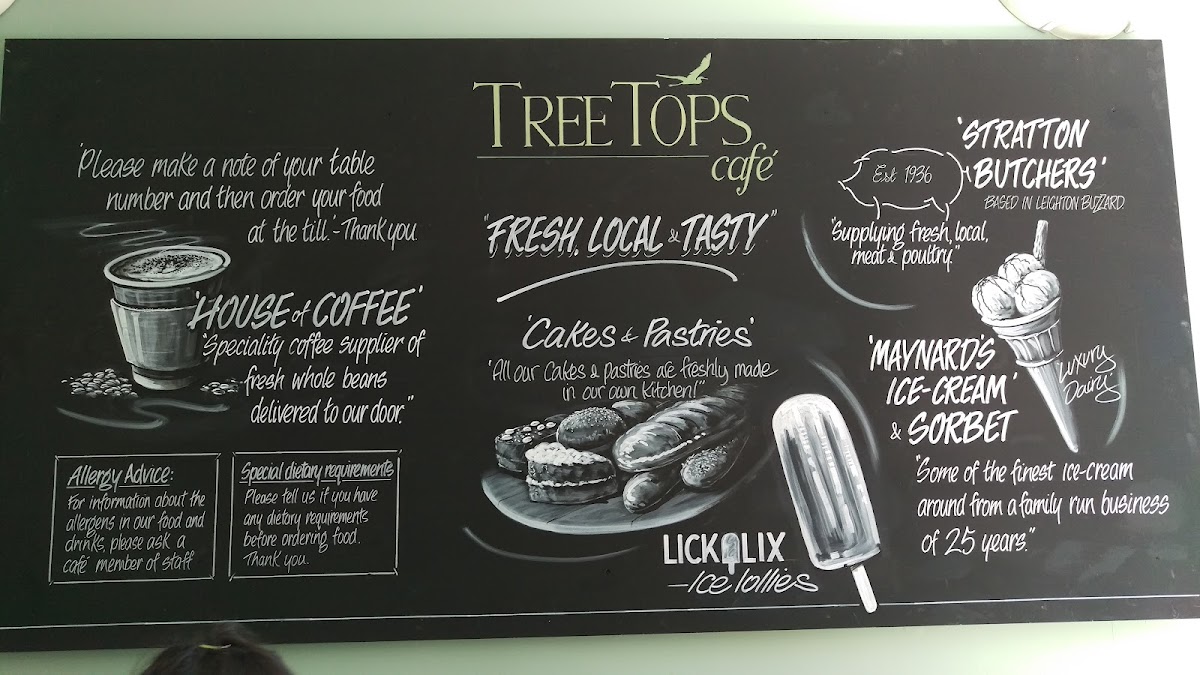 TREE TOPS
café
'Please make a note of your table
number and then order your food
at the till.' - Thank you.
'HOUSE of COFFEE'
"Speciality coffee supplier of
fresh whole beans
delivered to our door."
Allergy Advice:
For information about the
allergens in our food and
drinks, please ask a
café member of staff
Special dietary requirements
Please tell us if you have
any dietary requirements
before ordering food.
Thank you.
"FRESH, LOCAL & TASTY"
'Cakes & Pastries'
"All our cakes & pastries are freshly made
in our own kitchen!"
LICKALIX
- Ice lollies
'STRATTON
BUTCHERS'
BASED IN LEIGHTON BUZZARD
Est 1936
"Supplying fresh, local,
meat & poultry"
'MAYNARD'S
ICE-CREAM'
& SORBET
Luxury
Dairy
"Some of the finest ice-cream
around from a family run business
of 25 years."